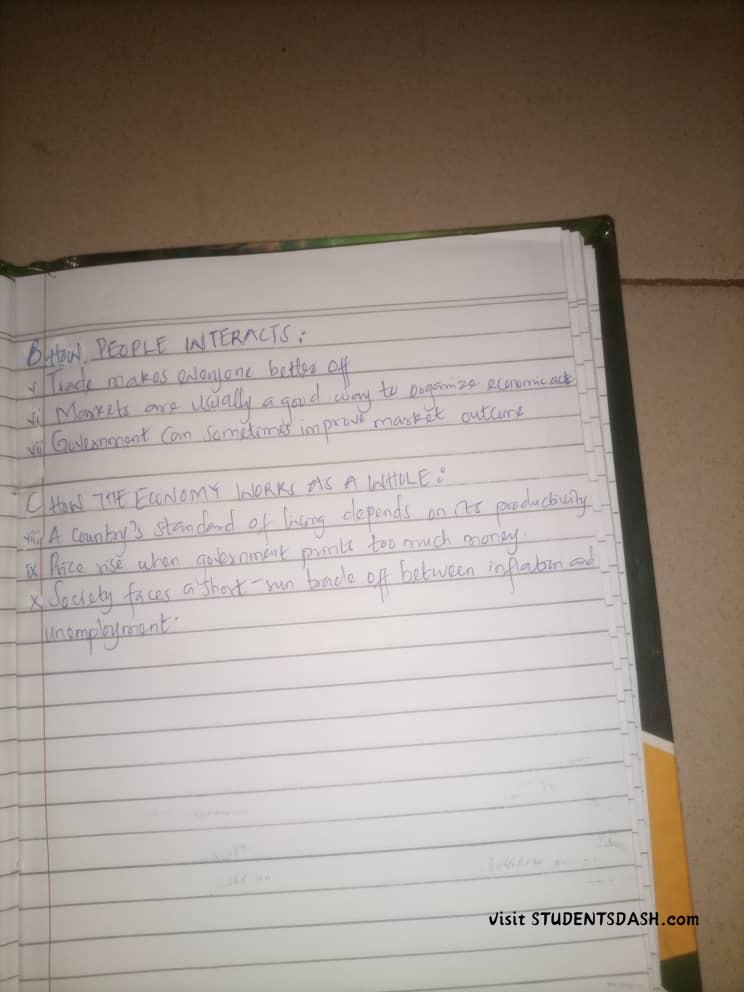 B HOW PEOPLE INTERACTS:
v Trade makes everyone better off
vi Markets are usually a good way to organize economic act
vii Government can sometimes improve market outcome
C HOW THE ECONOMY WORKS AS A WHOLE:
viii A country's standard of living depends on its productivity
ix Price rise when government prints too much money.
x Society faces a short-run trade off between inflation and
unemployment.
visit STUDENTSDASH.com